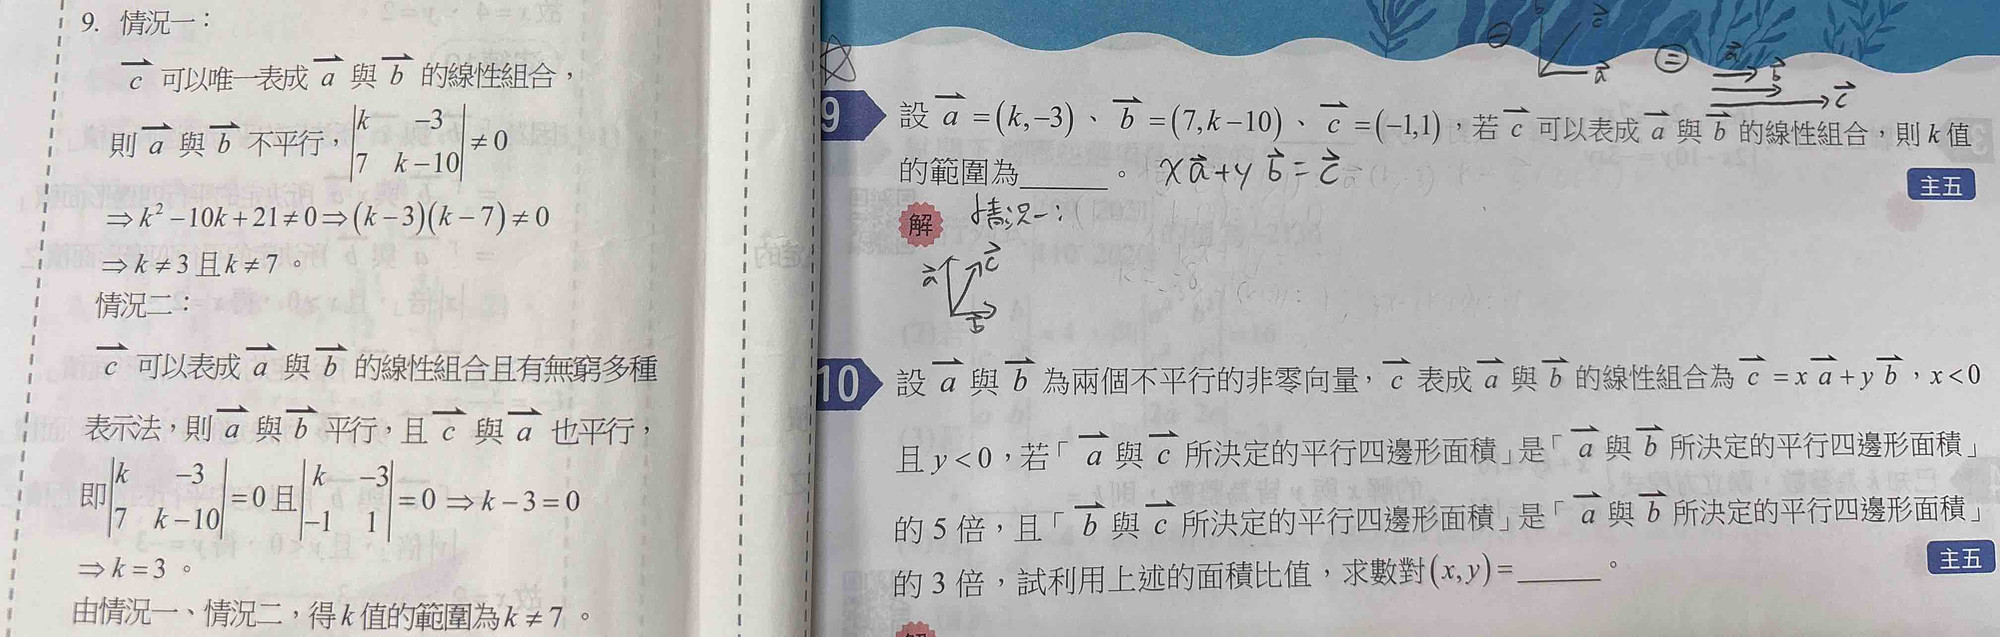 9. 情況一：
c 可以唯一表成 a 與 b 的線性組合，
則 a 與 b 不平行，|k −3; 7 k−10| ≠ 0
⇒ k² −10k + 21 ≠ 0 ⇒ (k−3)(k−7) ≠ 0
⇒ k ≠ 3 且 k ≠ 7。
情況二：
c 可以表成 a 與 b 的線性組合且有無窮多種
表示法，則 a 與 b 平行，且 c 與 a 也平行，
即 |k −3; 7 k−10| = 0 且 |k −3; −1 1| = 0 ⇒ k − 3 = 0
⇒ k = 3。
由情況一、情況二，得 k 值的範圍為 k ≠ 7。
一 c a
二 a b c
9 設 a = (k,−3)、b = (7,k−10)、c = (−1,1)，若 c 可以表成 a 與 b 的線性組合，則 k 值
的範圍為______。 xa + yb = c
主五
解 情況一：
a c b
10 設 a 與 b 為兩個不平行的非零向量，c 表成 a 與 b 的線性組合為 c = x a + y b，x < 0
且 y < 0，若「a 與 c 所決定的平行四邊形面積」是「a 與 b 所決定的平行四邊形面積」
的 5 倍，且「b 與 c 所決定的平行四邊形面積」是「a 與 b 所決定的平行四邊形面積」
的 3 倍，試利用上述的面積比值，求數對 (x, y) = ______。
主五